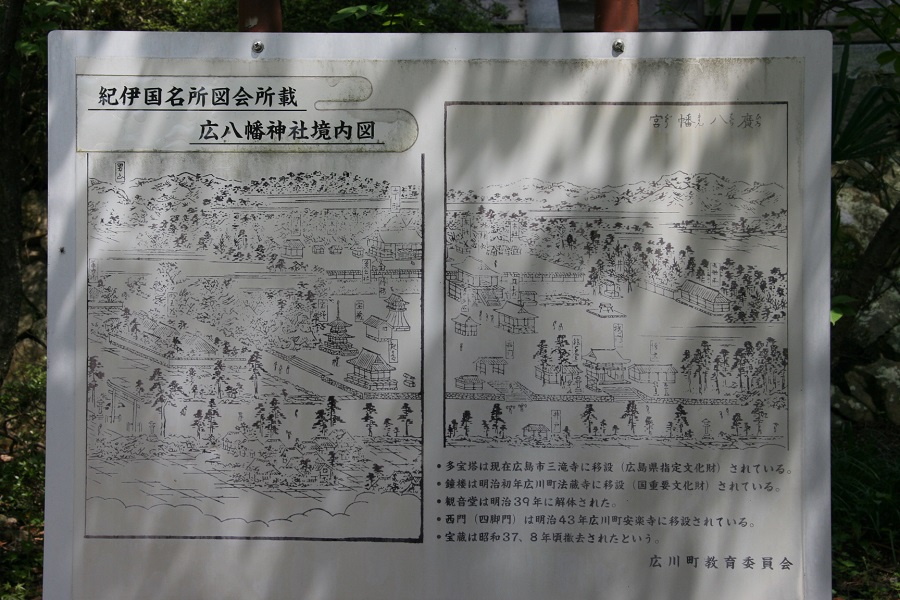 紀伊国名所図会所載
広八幡神社境内図
・多宝塔は現在広島市三滝寺に移設（広島県指定文化財）されている。
・鐘楼は明治初年広川町法蔵寺に移設（国重要文化財）されている。
・観音堂は明治39年に解体された。
・西門（四脚門）は明治43年広川町安楽寺に移設されている。
・宝蔵は昭和37、8年頃撤去されたという。
広川町教育委員会